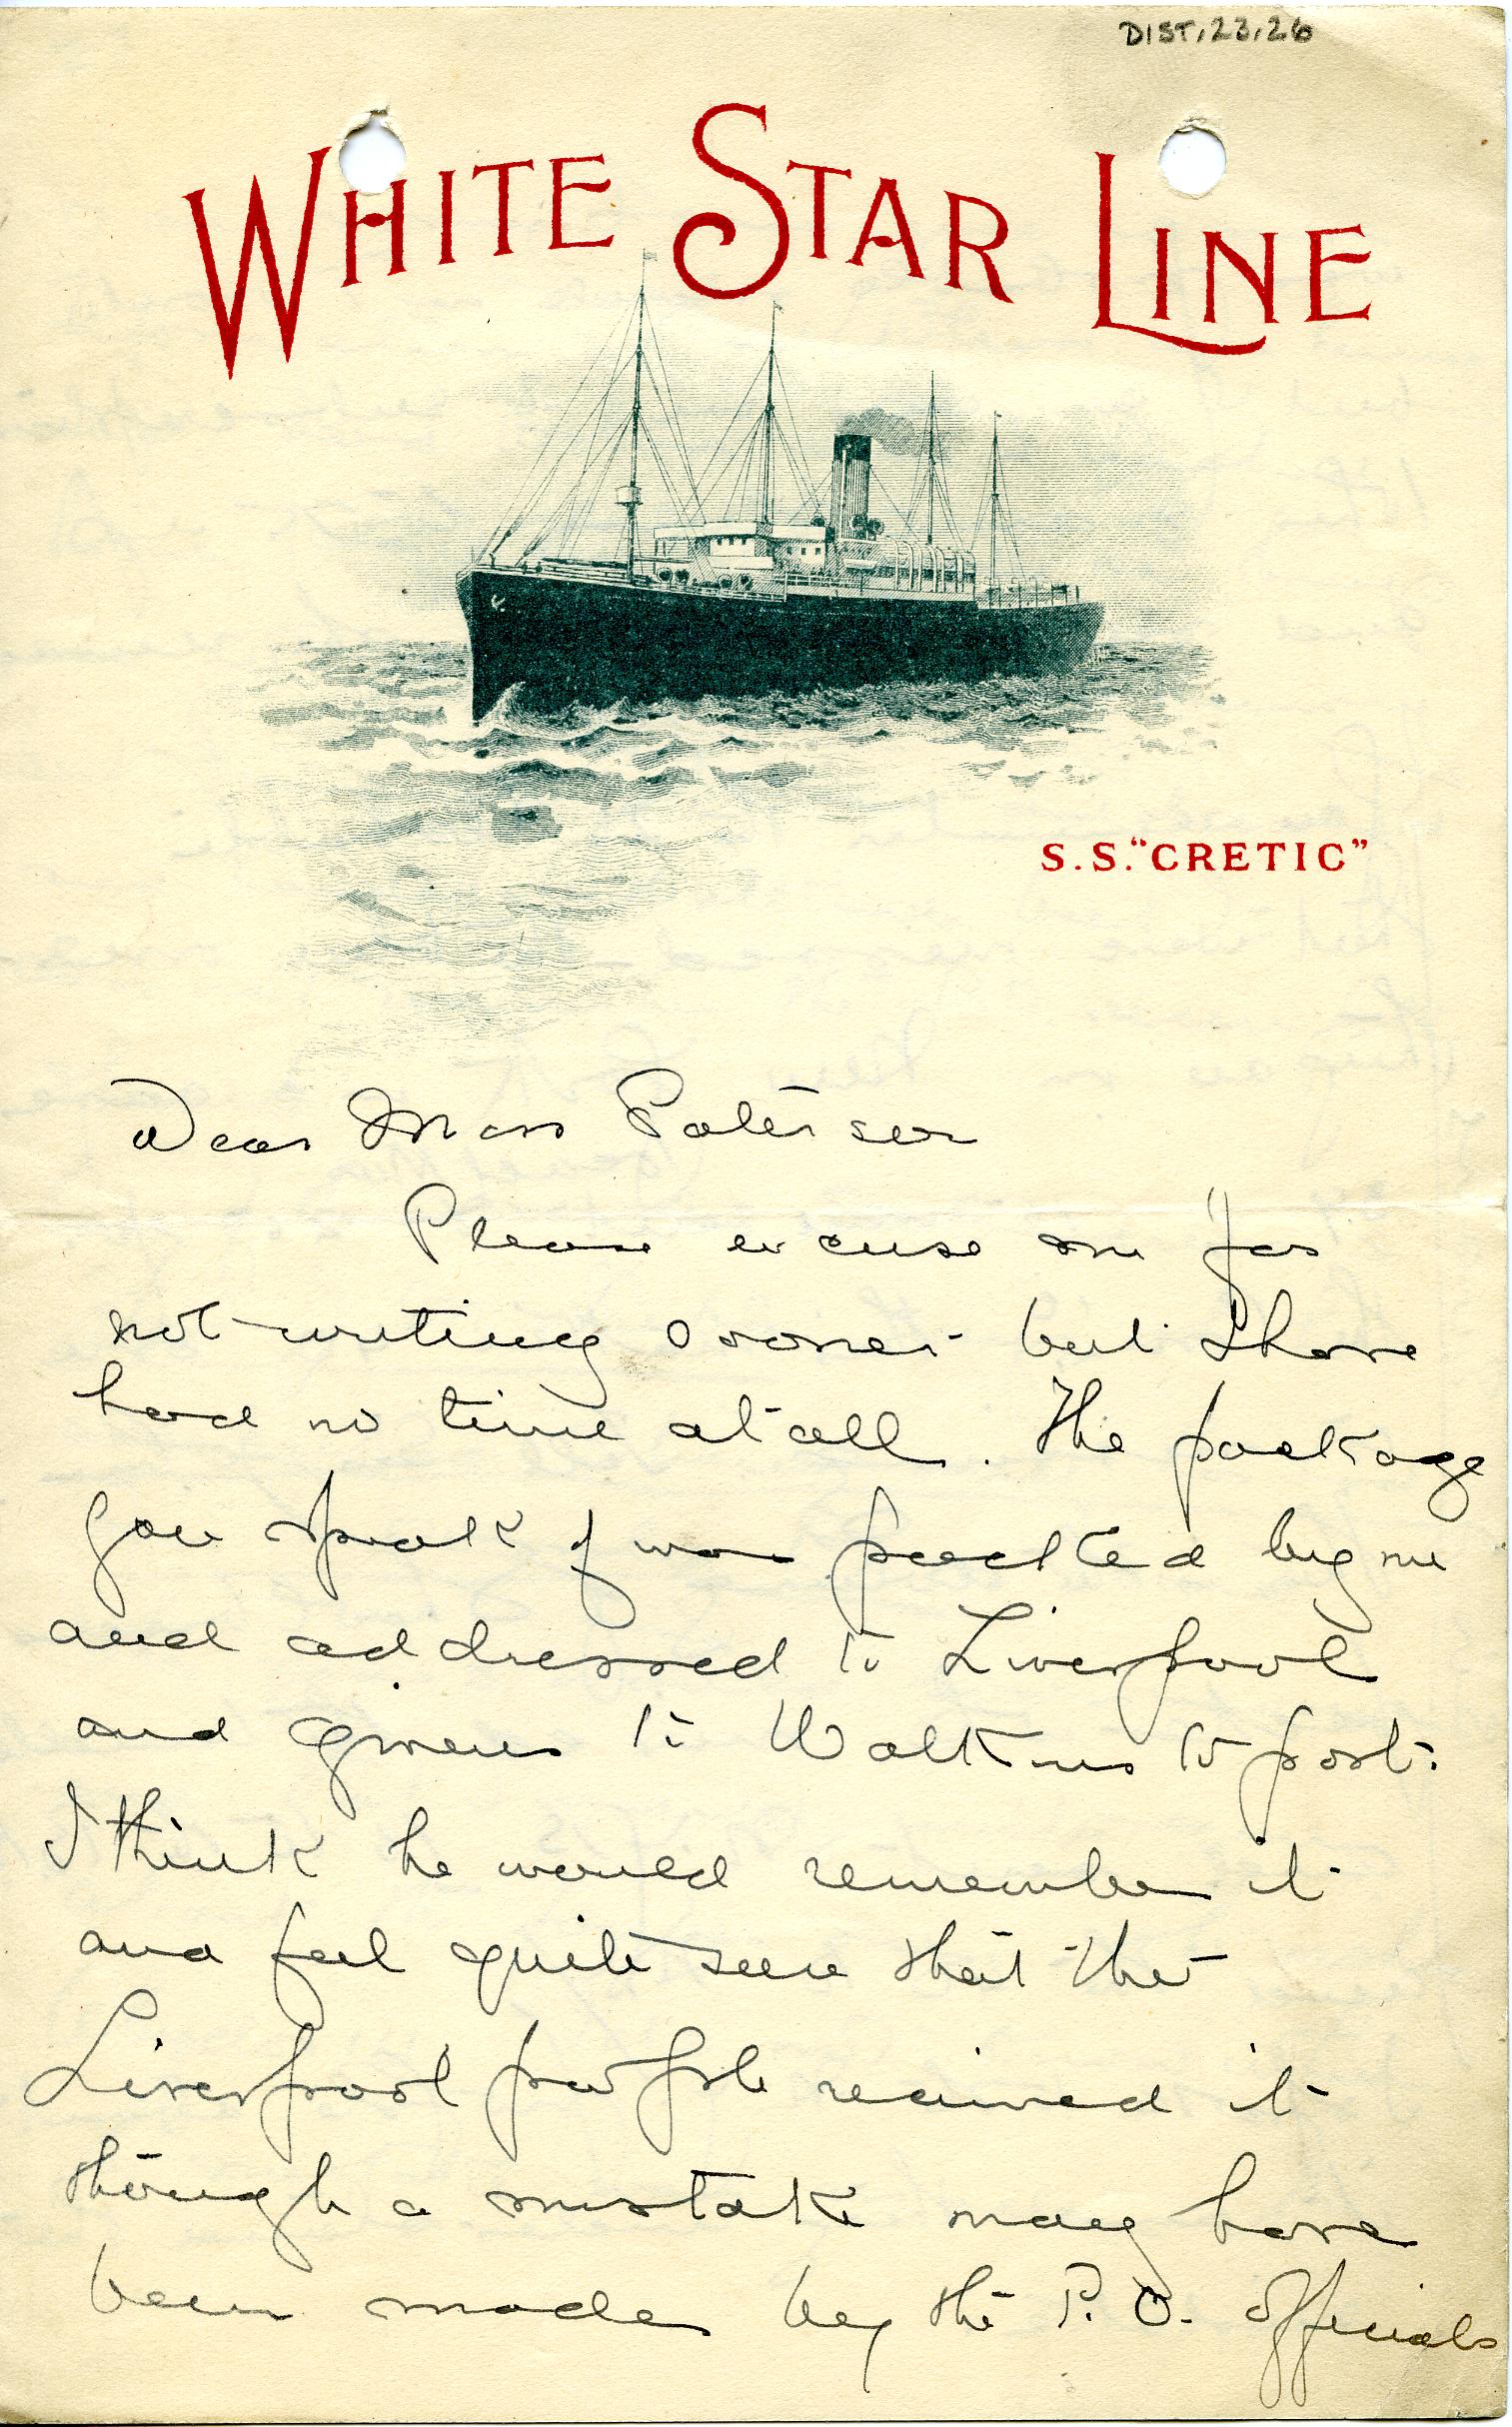 DIST.23.26
WHITE STAR LINE
S.S. "CRETIC"
Dear Miss Paterson
Please excuse me for
not writing sooner but I have
had no time at all. The package
you speak of was packed by me
and addressed to Liverpool
and given to Watkins to post.
I think he would remember it
and feel quite sure that the
Liverpool people received it
though a mistake may have
been made by the P.O. officials